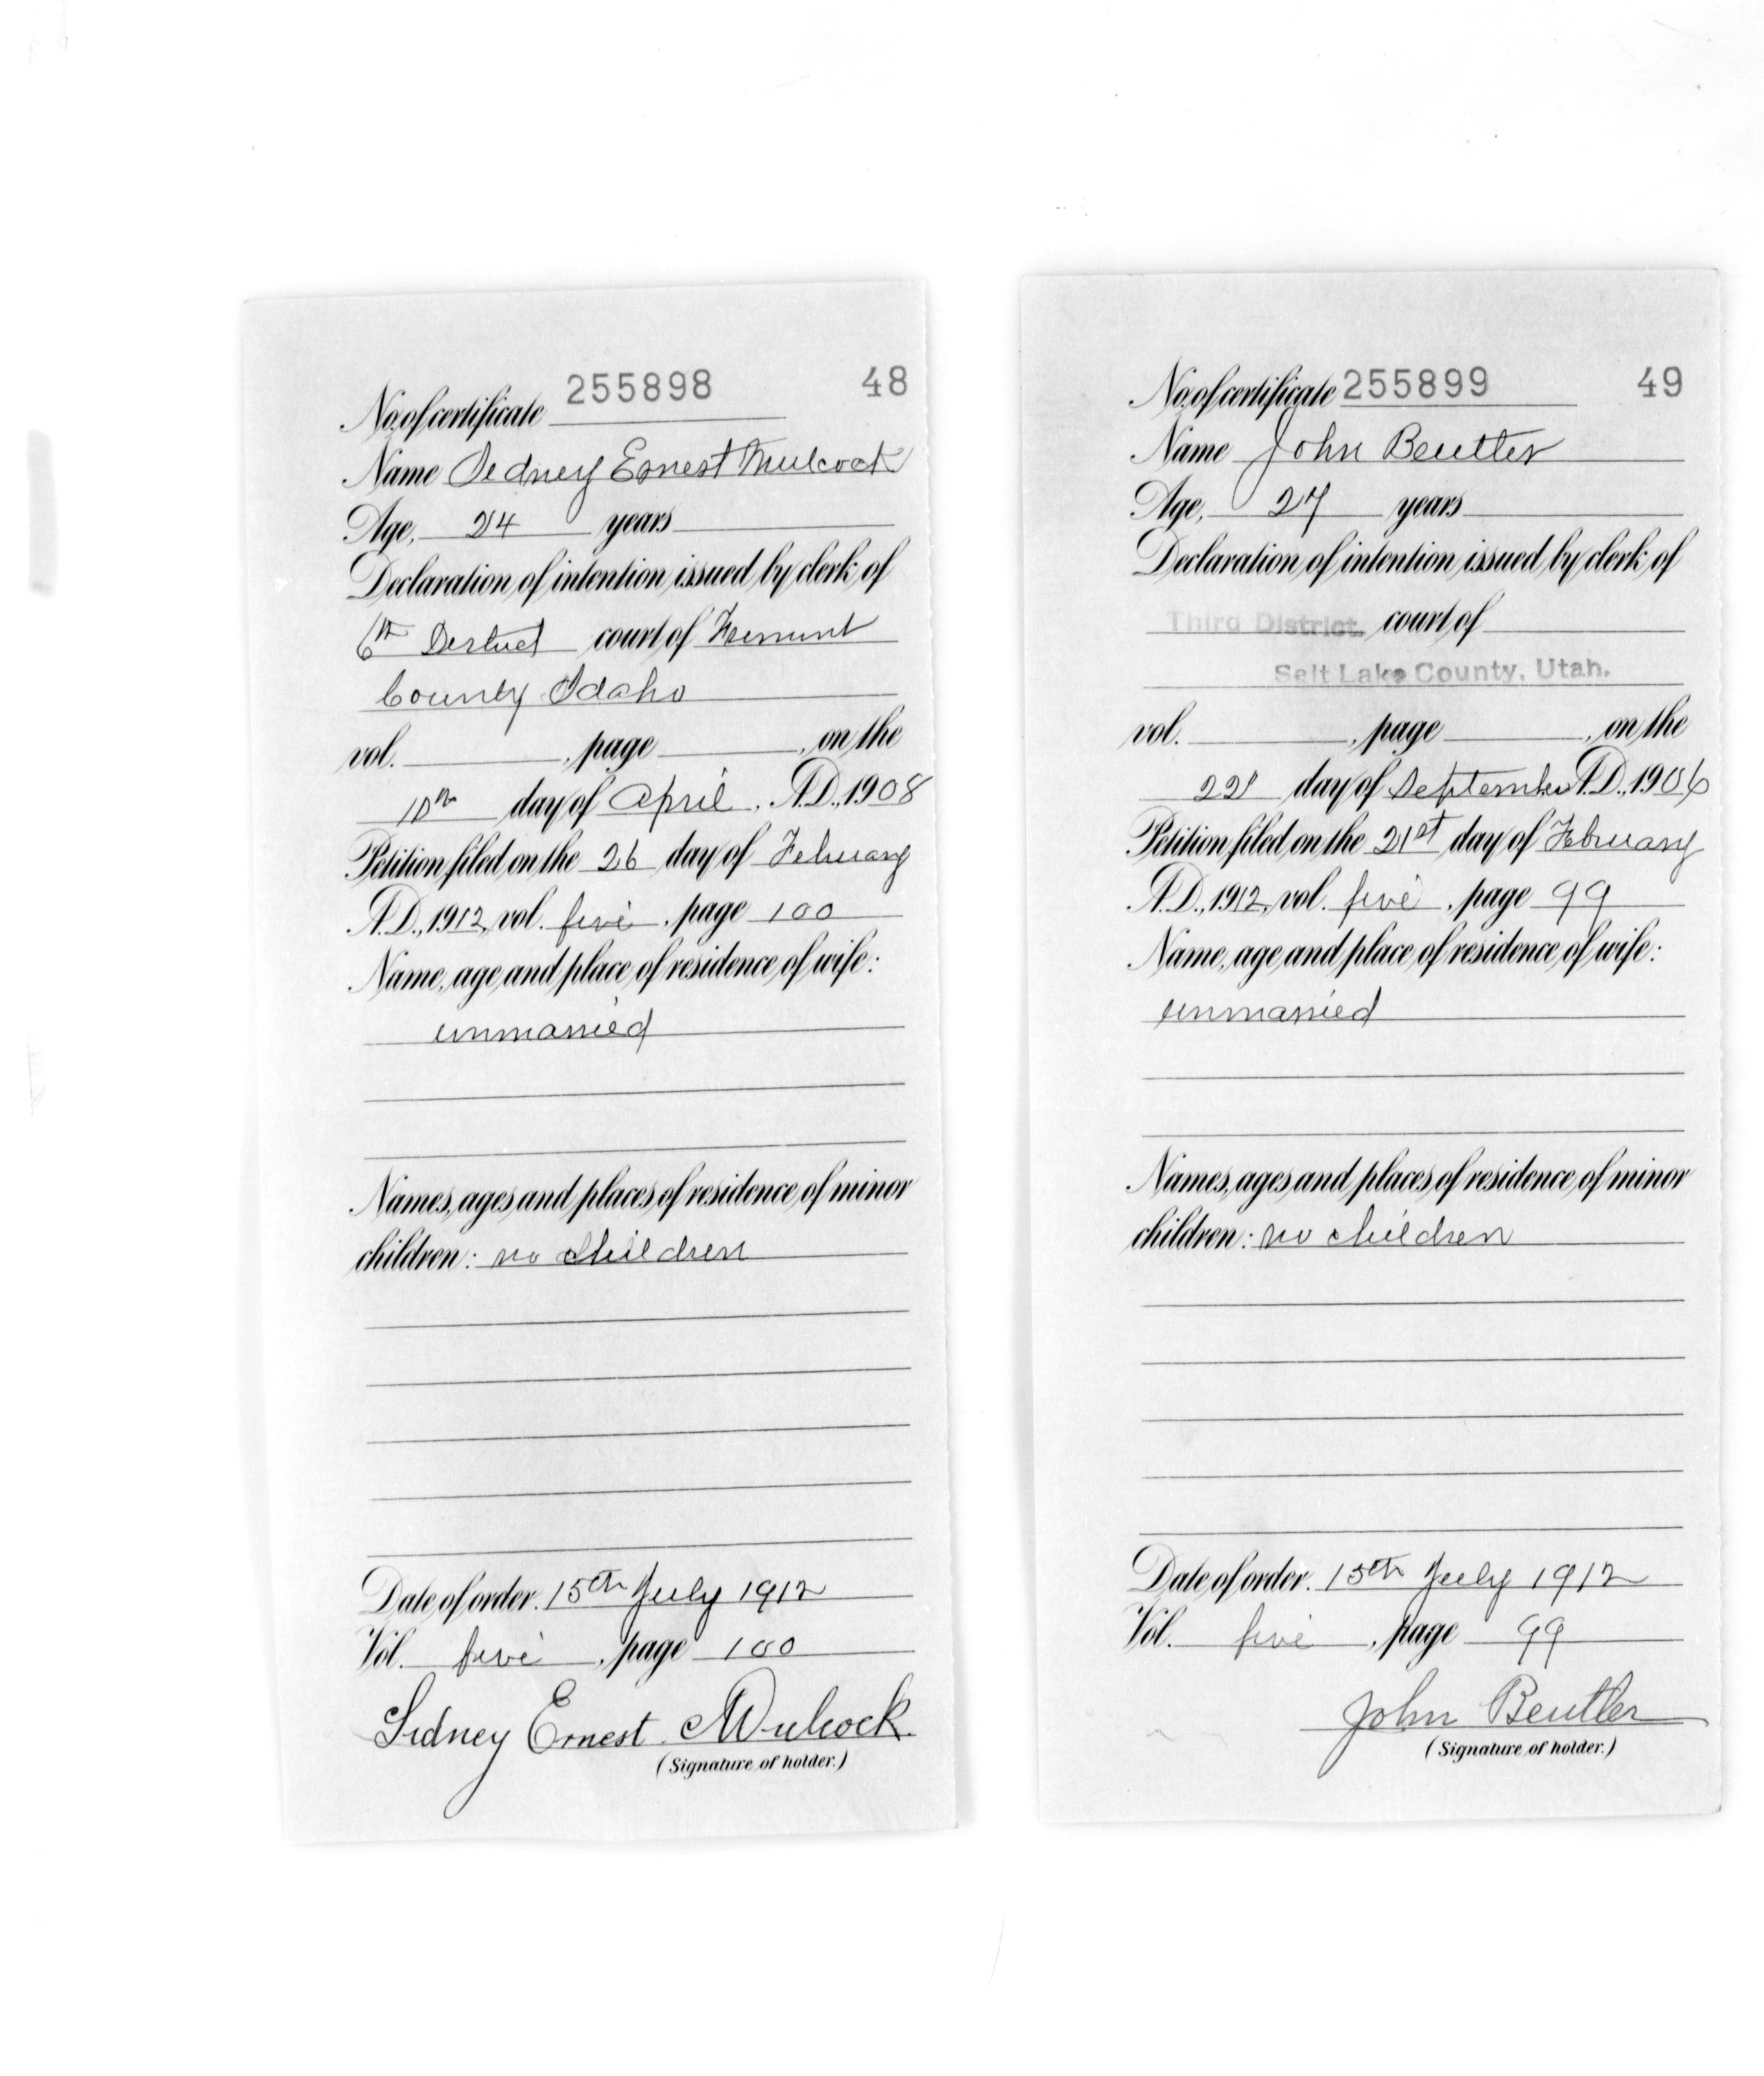 No. of certificate 255898 48
Name Sidney Ernest Mulcock
Age, 24 years
Declaration of intention issued by clerk of
6th District court of Fremont
County Idaho
vol. , page , on the
10th day of April , A.D., 1908
Petition filed on the 26 day of February
A.D., 1912, vol. five , page 100
Name, age and place of residence of wife:
unmarried
Names, ages and places of residence of minor
children: no children
Date of order. 15th July 1912
Vol. five , page 100
Sidney Ernest Mulcock
(Signature of holder.)
No. of certificate 255899 49
Name John Beutler
Age, 27 years
Declaration of intention issued by clerk of
Third District, court of
Salt Lake County, Utah.
vol. , page , on the
22 day of September A.D., 1906
Petition filed on the 21st day of February
A.D., 1912, vol. five , page 99
Name, age and place of residence of wife:
unmarried
Names, ages and places of residence of minor
children: no children
Date of order. 15th July 1912
Vol. five , page 99
John Beutler
(Signature of holder.)